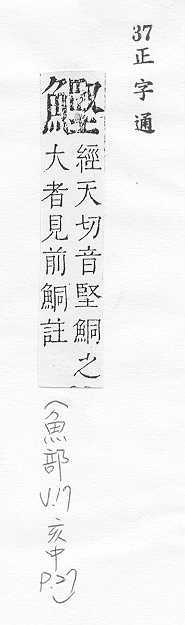 37正字通
鰹
經天切音堅鮦之
大者見前鮦註
(魚部 V.17 亥中 P.27)